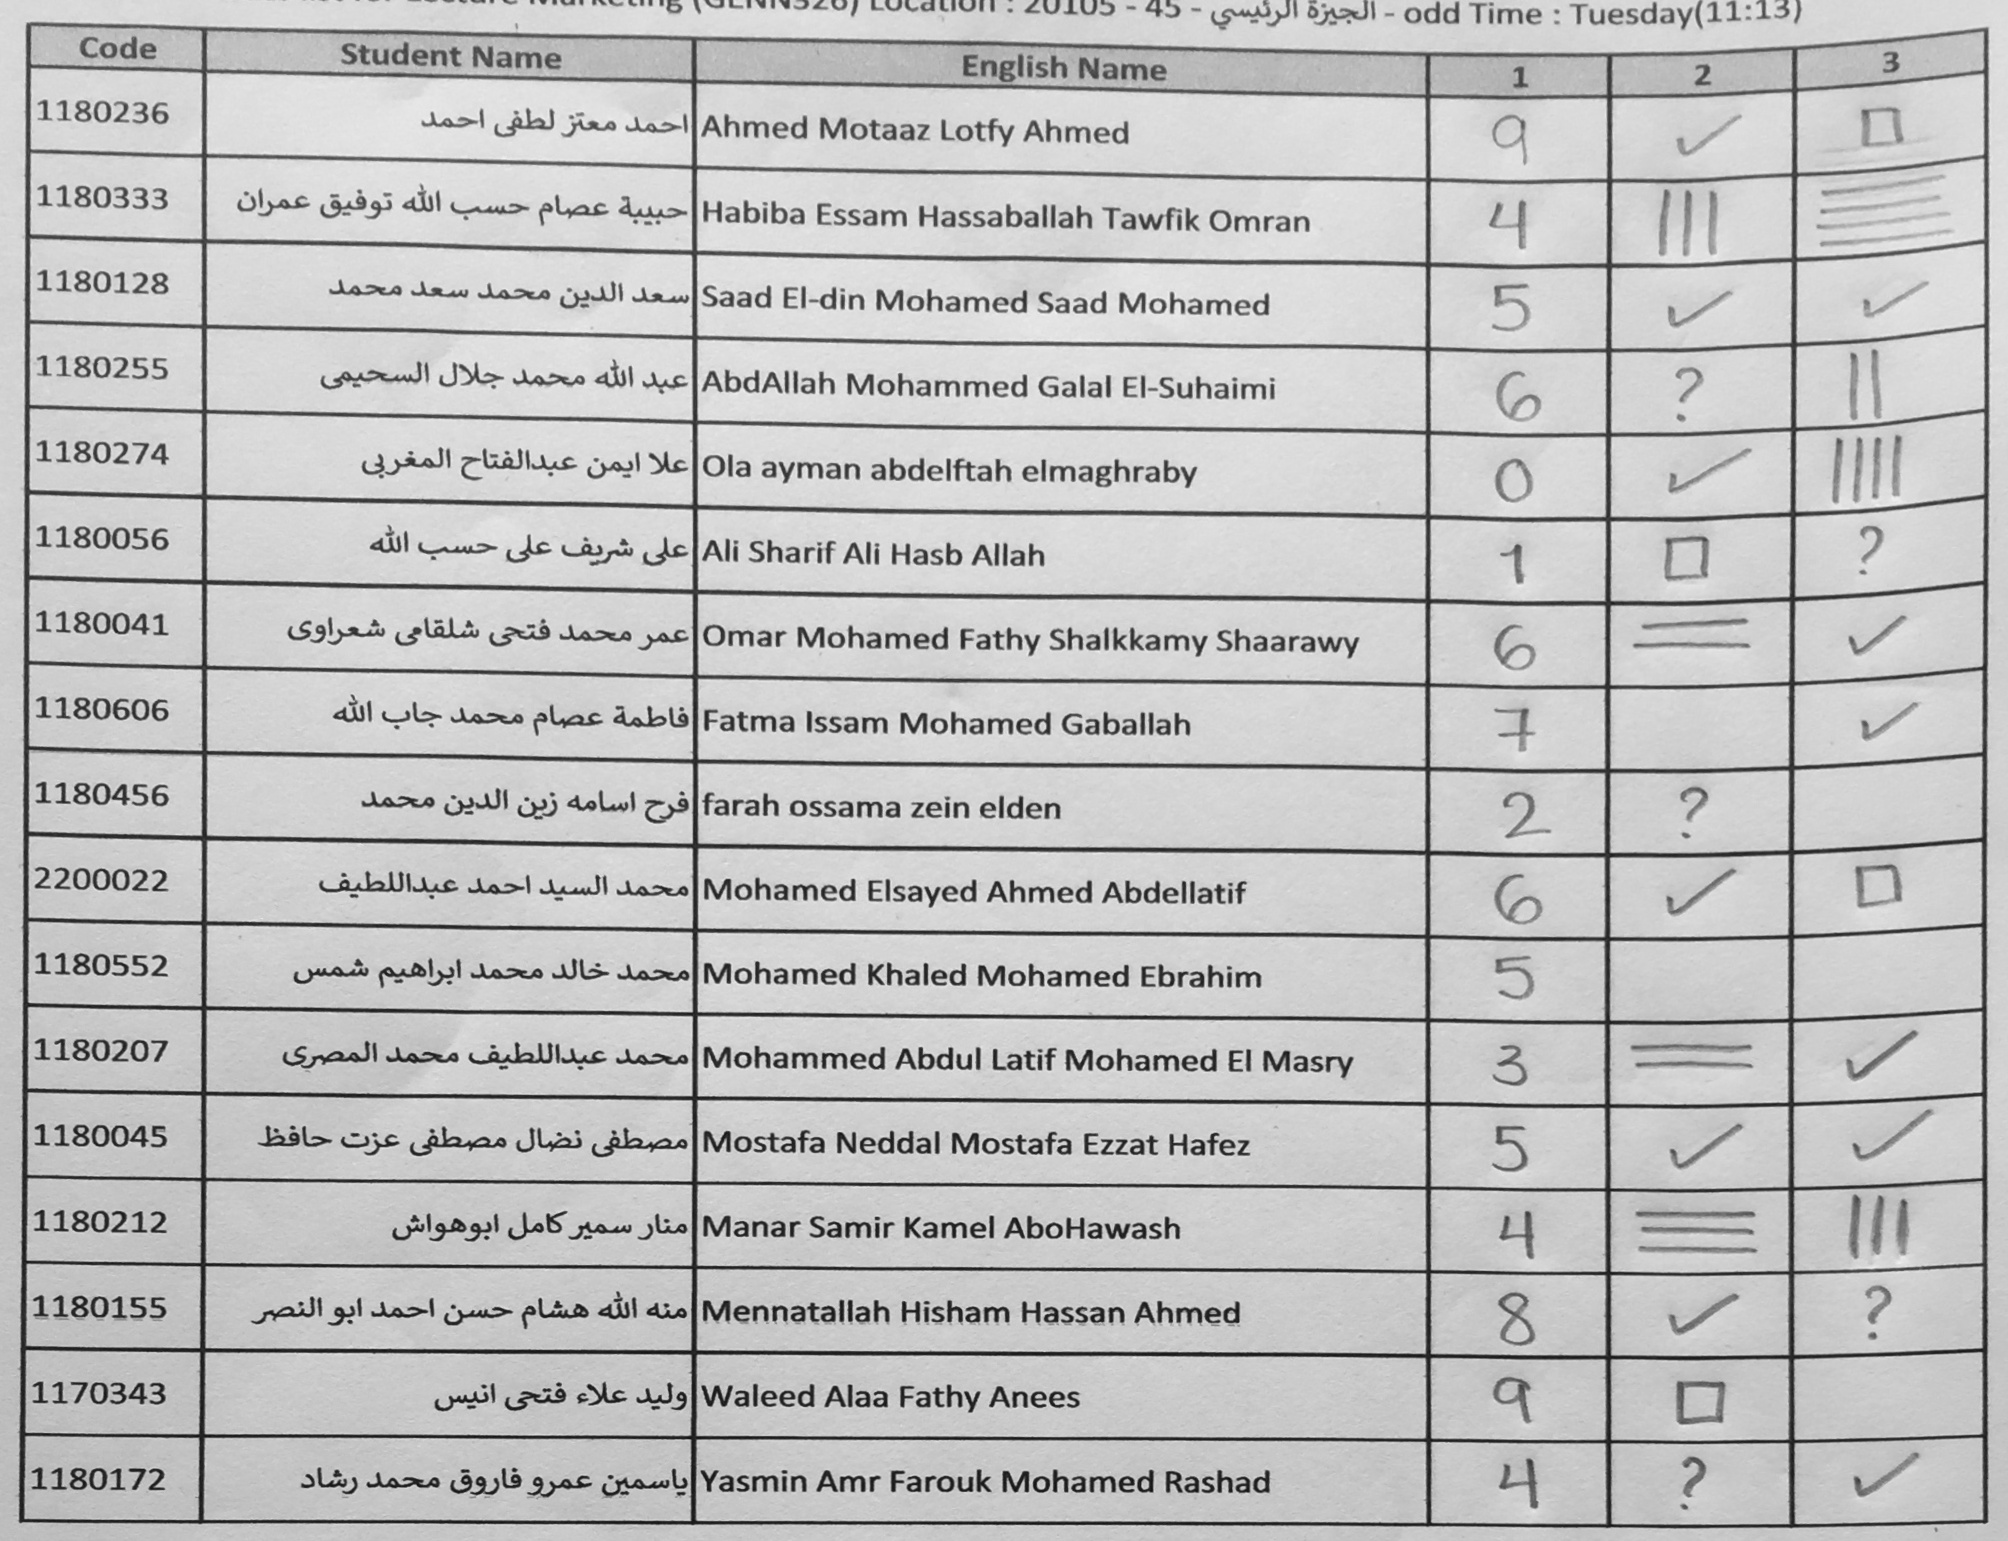 for Lecture Marketing (GENN326) Location : 20105 - 45 - الجيزة الرئيسي - odd Time : Tuesday(11:13)
Code Student Name English Name 1 2 3
1180236 احمد معتز لطفى احمد Ahmed Motaaz Lotfy Ahmed 9 ✓ □
1180333 حبيبة عصام حسب الله توفيق عمران Habiba Essam Hassaballah Tawfik Omran 4 |||
1180128 سعد الدين محمد سعد محمد Saad El-din Mohamed Saad Mohamed 5 ✓ ✓
1180255 عبد الله محمد جلال السحيمى AbdAllah Mohammed Galal El-Suhaimi 6 ? ||
1180274 علا ايمن عبدالفتاح المغربى Ola ayman abdelftah elmaghraby 0 ✓ ||||
1180056 على شريف على حسب الله Ali Sharif Ali Hasb Allah 1 □ ?
1180041 عمر محمد فتحى شلقامى شعراوى Omar Mohamed Fathy Shalkkamy Shaarawy 6 = ✓
1180606 فاطمة عصام محمد جاب الله Fatma Issam Mohamed Gaballah 7 ✓
1180456 فرح اسامه زين الدين محمد farah ossama zein elden 2 ?
2200022 محمد السيد احمد عبداللطيف Mohamed Elsayed Ahmed Abdellatif 6 ✓ □
1180552 محمد خالد محمد ابراهيم شمس Mohamed Khaled Mohamed Ebrahim 5
1180207 محمد عبداللطيف محمد المصرى Mohammed Abdul Latif Mohamed El Masry 3 = ✓
1180045 مصطفى نضال مصطفى عزت حافظ Mostafa Neddal Mostafa Ezzat Hafez 5 ✓ ✓
1180212 منار سمير كامل ابوهواش Manar Samir Kamel AboHawash 4 ≡ |||
1180155 منه الله هشام حسن احمد ابو النصر Mennatallah Hisham Hassan Ahmed 8 ✓ ?
1170343 وليد علاء فتحى انيس Waleed Alaa Fathy Anees 9 □
1180172 ياسمين عمرو فاروق محمد رشاد Yasmin Amr Farouk Mohamed Rashad 4 ? ✓